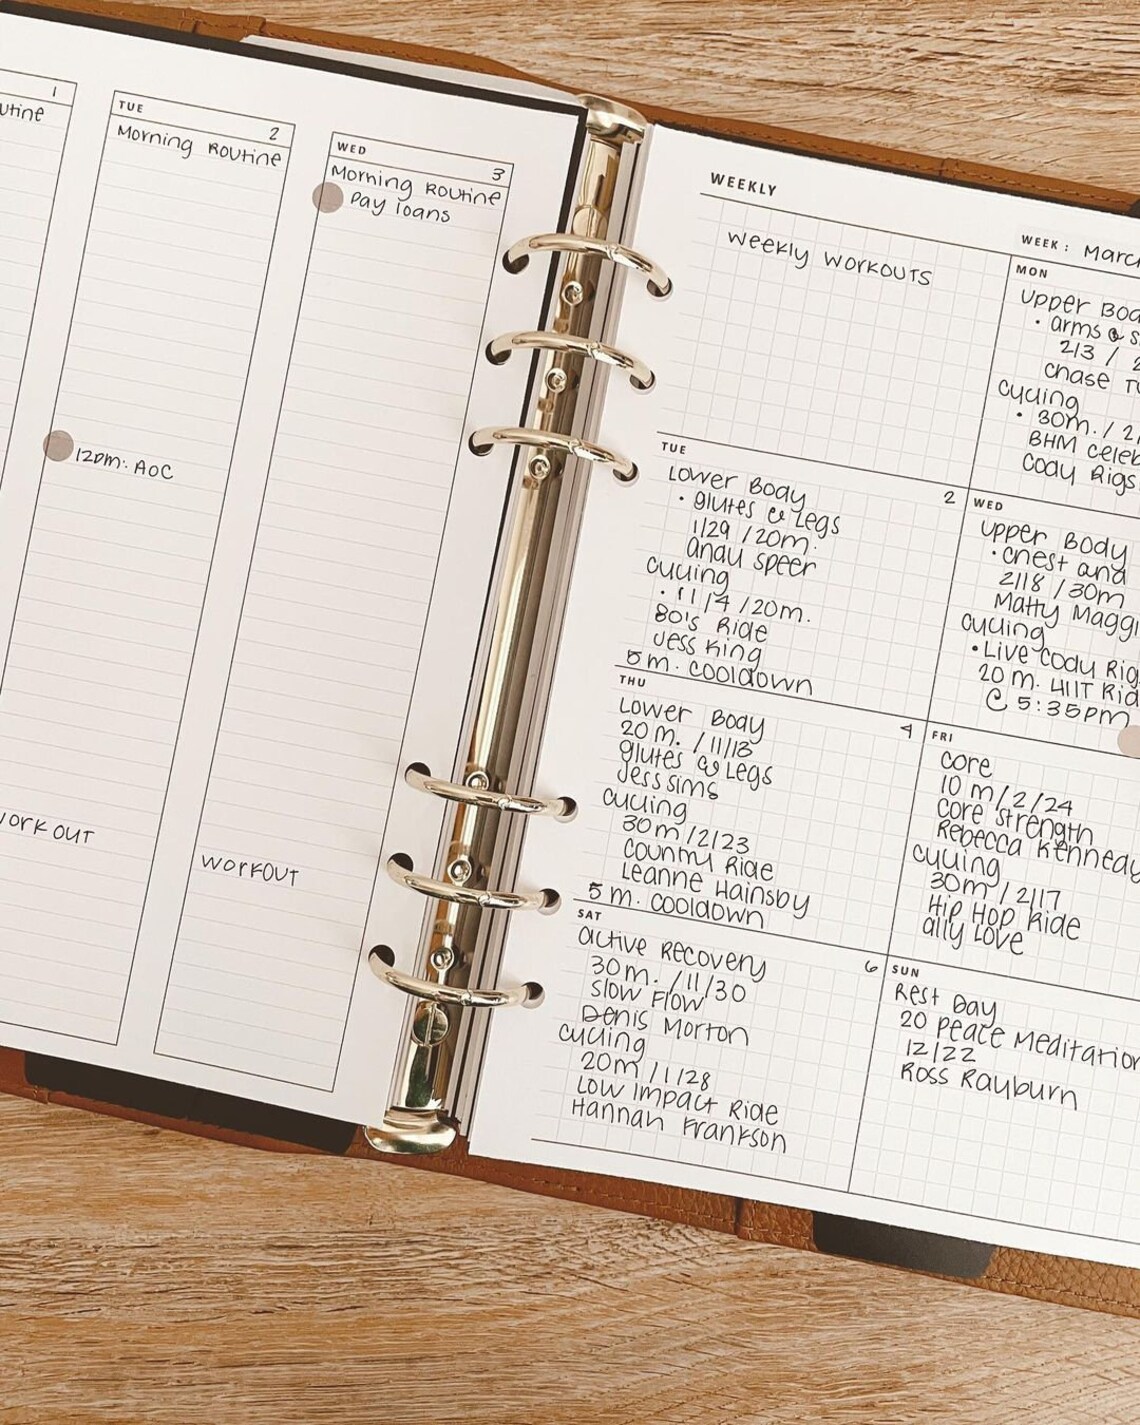 1
TUE
2
Morning Routine
12pm: AOC
WORK OUT
WED
3
Morning Routine
Pay loans
WORKOUT
WEEKLY
Weekly Workouts
WEEK:
MON
Upper
• arms &
2/3 /
Chase
Cycling
• 30m. /
BHM
Cody Rigs
TUE
2
Lower Body
• glutes & Legs
1/29 /20m.
andy speer
cycling
1/4 /20m.
80's Ride
Jess King
5 m. cooldown
WED
Upper Body
• chest and
2/18 /30m
Matty
cycling
• Live Cody
20 m. HIIT
@ 5:35pm
THU
4
Lower Body
20 m. /11/13
glutes & Legs
Jess Sims
cycling
30m /2/23
Country Ride
Leanne Hainsby
5 m. cooldown
FRI
core
10 m/2/24
core strength
Rebecca Kennedy
cycling
30m /2/17
Hip Hop Ride
ally Love
SAT
6
active recovery
30m. /11/30
slow flow
Denis Morton
cycling
20m /1/28
Low Impact Ride
Hannah Frankson
SUN
Rest Day
20 Peace Meditation
12/22
Ross Rayburn